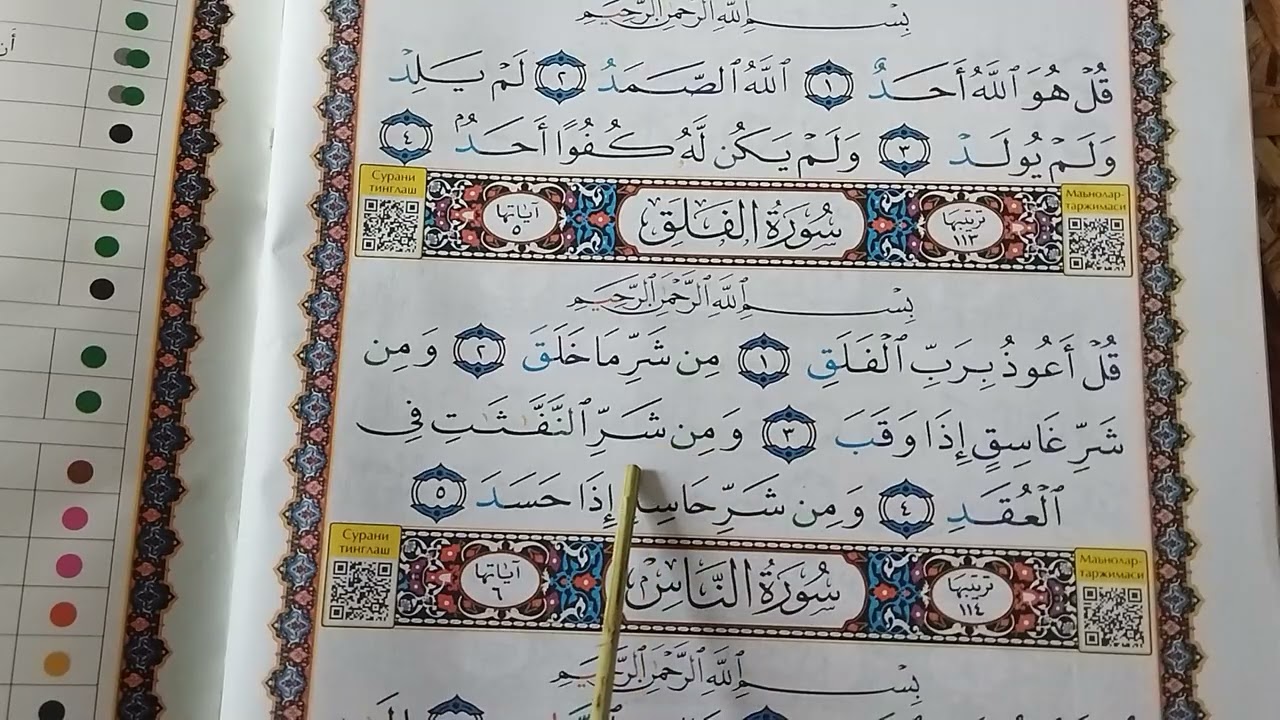 بِسْمِ ٱللَّهِ ٱلرَّحْمَٰنِ ٱلرَّحِيمِ
قُلْ هُوَ ٱللَّهُ أَحَدٌ ١ ٱللَّهُ ٱلصَّمَدُ ٢ لَمْ يَلِدْ
وَلَمْ يُولَدْ ٣ وَلَمْ يَكُن لَّهُ كُفُوًا أَحَدٌۢ ٤
Маънолар-
таржимаси
ترتيبها
١١٣
سُورَةُ الْفَلَقِ
آياتها
٥
Сурани
тинглаш
بِسْمِ ٱللَّهِ ٱلرَّحْمَٰنِ ٱلرَّحِيمِ
قُلْ أَعُوذُ بِرَبِّ ٱلْفَلَقِ ١ مِن شَرِّ مَا خَلَقَ ٢ وَمِن
شَرِّ غَاسِقٍ إِذَا وَقَبَ ٣ وَمِن شَرِّ ٱلنَّفَّٰثَٰتِ فِى
ٱلْعُقَدِ ٤ وَمِن شَرِّ حَاسِدٍ إِذَا حَسَدَ ٥
Маънолар-
таржимаси
ترتيبها
١١٤
سُورَةُ النَّاسِ
آياتها
٦
Сурани
тинглаш
بِسْمِ ٱللَّهِ ٱلرَّحْمَٰنِ ٱلرَّحِيمِ